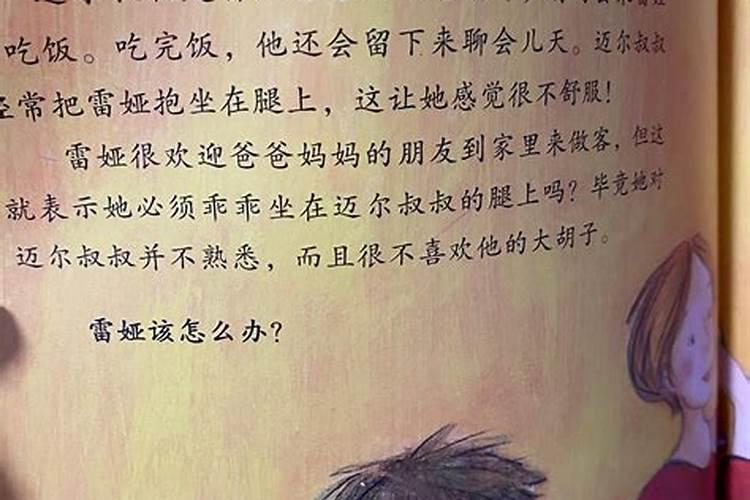 吃饭。吃完饭，他还会留下来聊会儿天。迈尔叔叔
经常把雷娅抱坐在腿上，这让她感觉很不舒服！
雷娅很欢迎爸爸妈妈的朋友到家里来做客，但这
就表示她必须乖乖坐在迈尔叔叔的腿上吗？毕竟她对
迈尔叔叔并不熟悉，而且很不喜欢他的大胡子。
雷娅该怎么办？